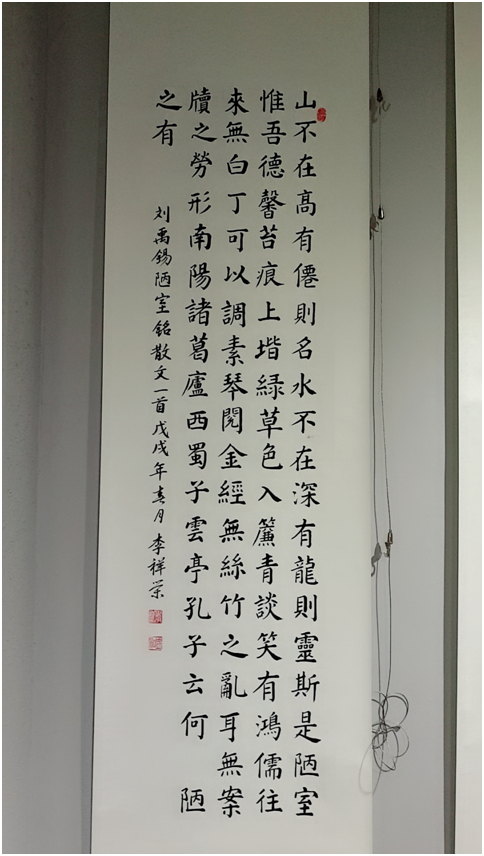 山不在高有僊則名水不在深有龍則靈斯是陋室
惟吾德馨苔痕上堦緑草色入簾青談笑有鴻儒往
來無白丁可以調素琴閱金經無絲竹之亂耳無案
牘之勞形南陽諸葛廬西蜀子雲亭孔子云何 陋
之有
刘禹錫陋室銘散文一首戊戌年春月李祥荣